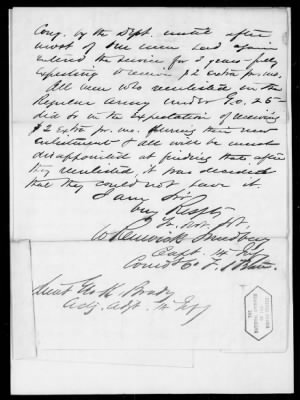 Cong. by the Dept. until after
most of the men had again
entered the service for 3 years – fully
expecting to receive $2 extra pr. mo.
All men who reenlisted in the
Regular Army under G.O. 25 –
did so in the expectation of receiving
$2 extra pr. mo. during their new
enlistment & all will be much
disappointed at finding that, after
they reenlisted, it was decided
that they could not have it.
I am Sir
Very Respty
Yr. Obt. Svt.
Capt. 14 Inf
Comd'g Co. F.
Lieut Geo. K. Brady
Actg. Adjt. 14 Infy
THE
NATIONAL ARCHIVES
OF THE
UNITED STATES